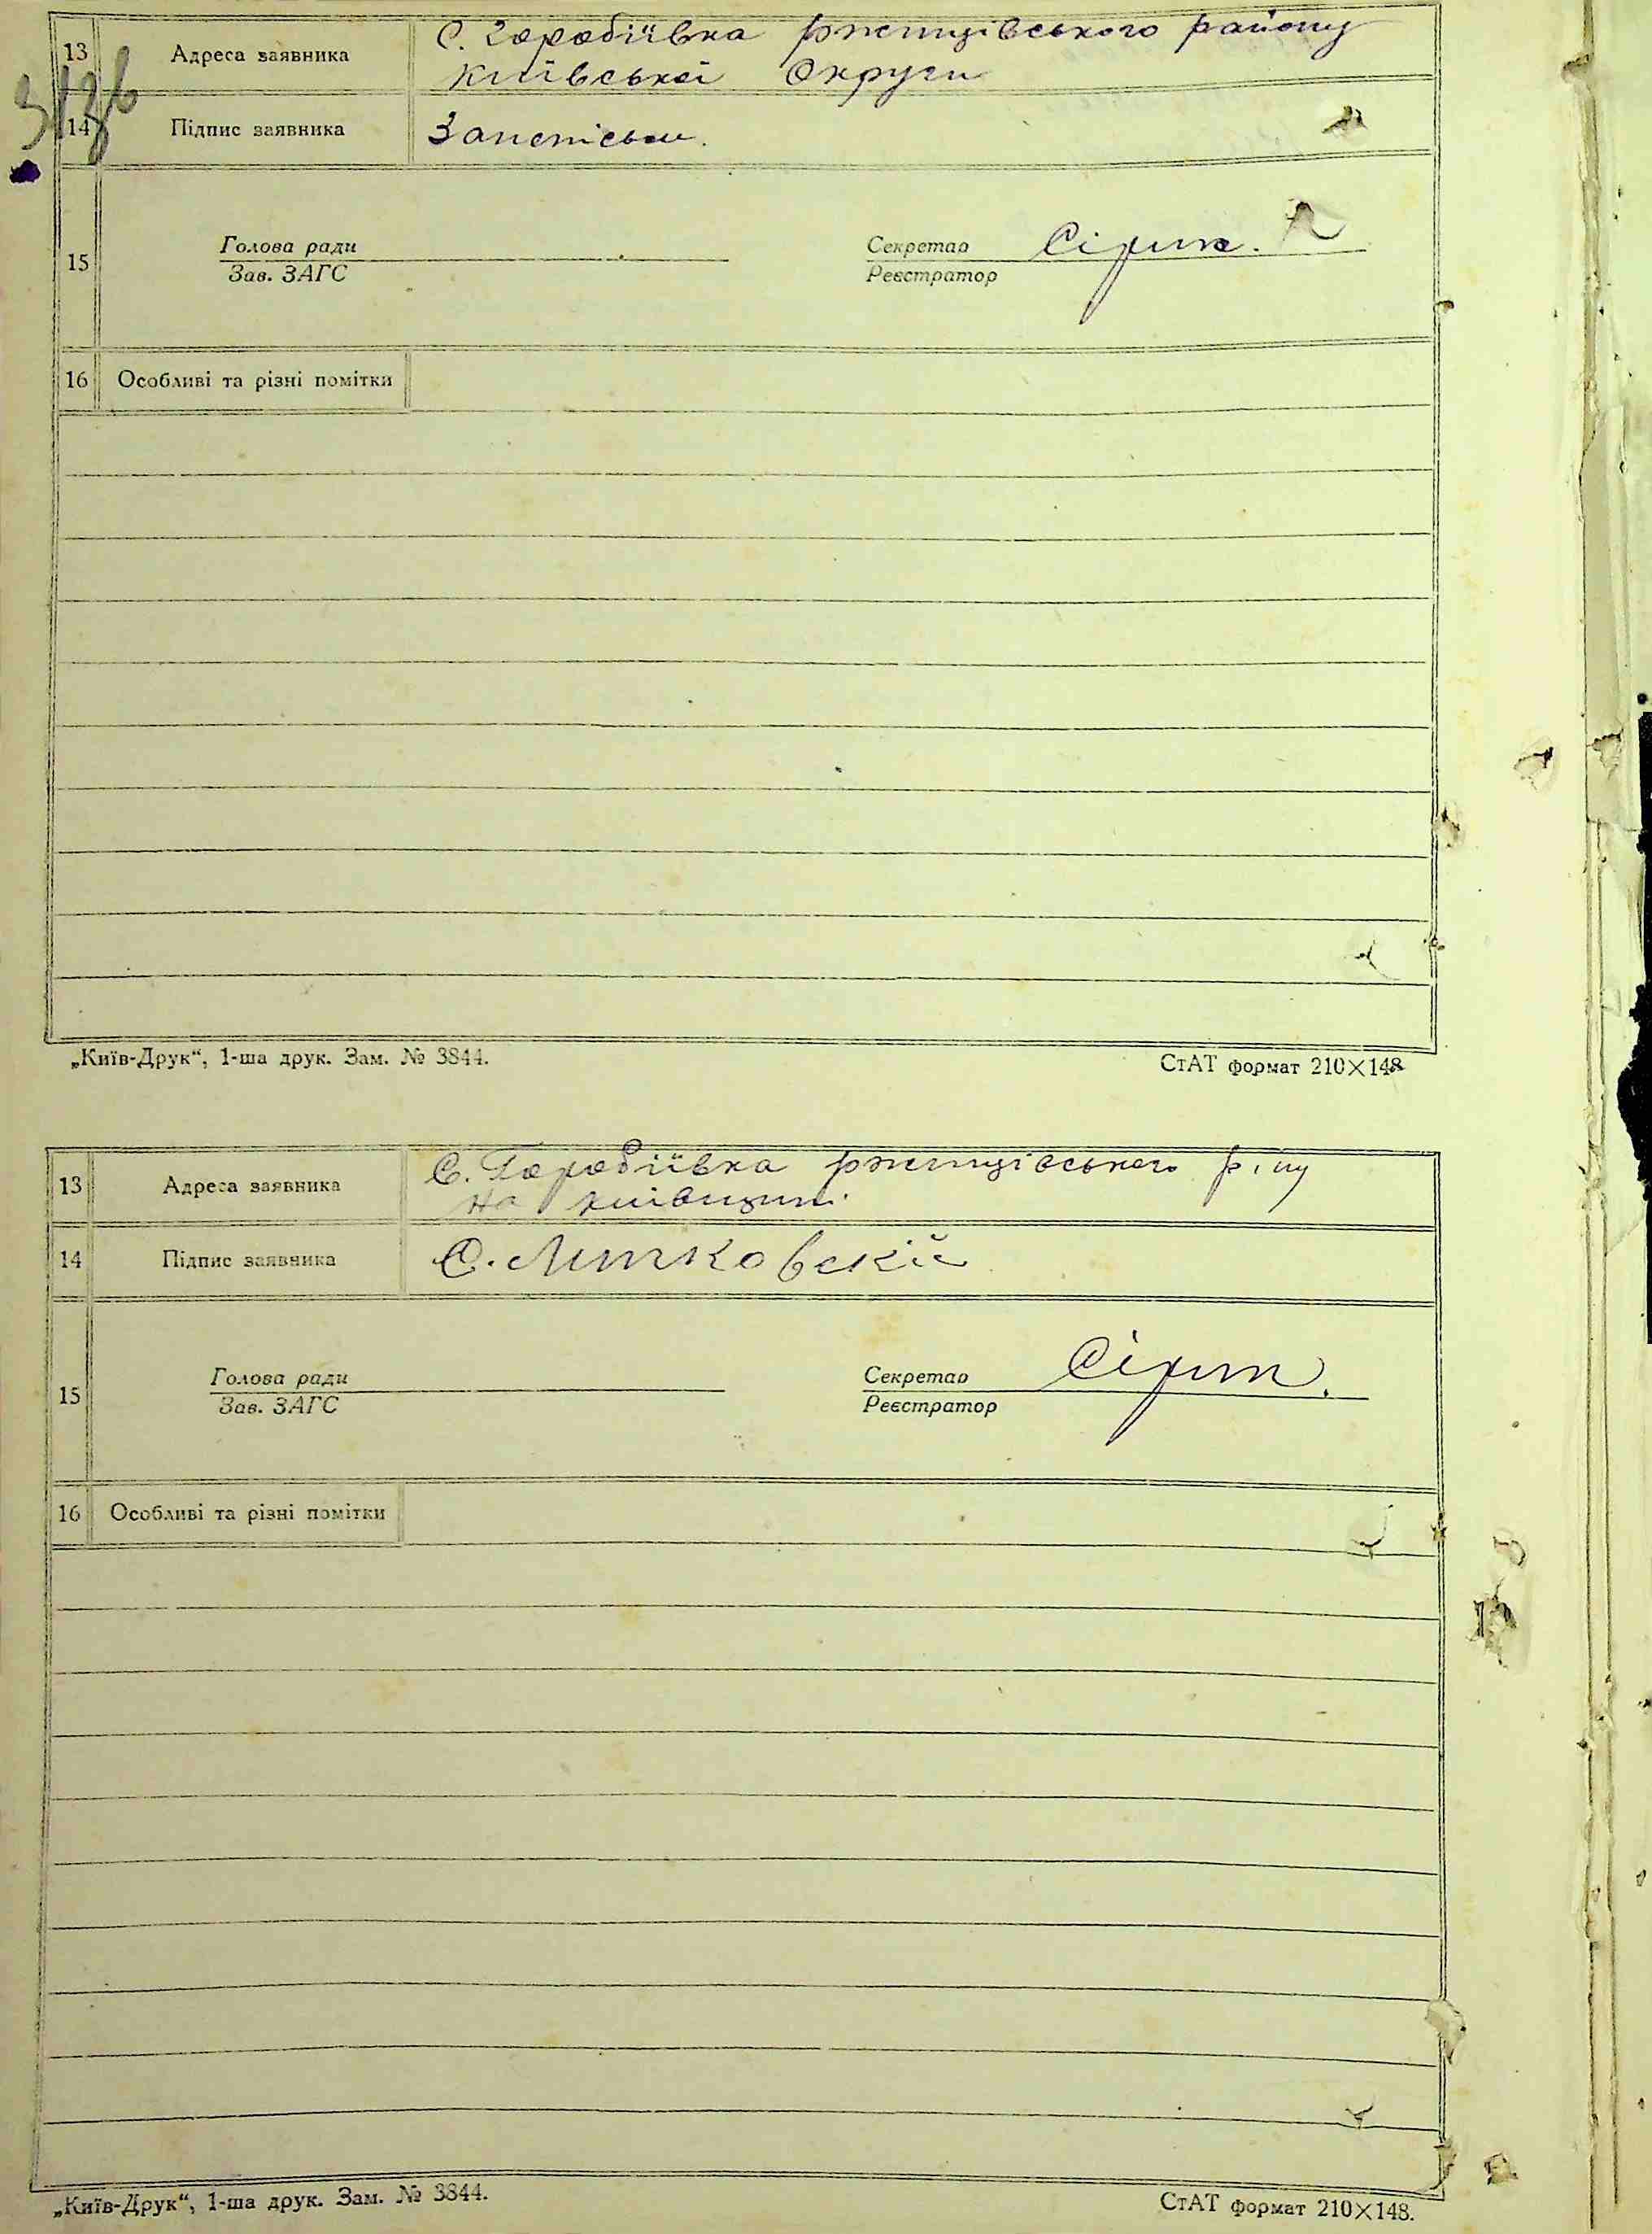 13 Адреса заявника С. Горобіївка ржищівського району
Київської Округи
14 Підпис заявника
15 Голова ради Секретар Сірит.
Зав. ЗАГС Реєстратор
16 Особливі та різні помітки
„Київ-Друк“, 1-ша друк. Зам. № 3844. СтАТ формат 210×148
13 Адреса заявника С. Горобіївка ржищівського р.ну
на Київщині.
14 Підпис заявника С. Митковскій
15 Голова ради Секретар Сірит.
Зав. ЗАГС Реєстратор
16 Особливі та різні помітки
„Київ-Друк“, 1-ша друк. Зам. № 3844. СтАТ формат 210×148.